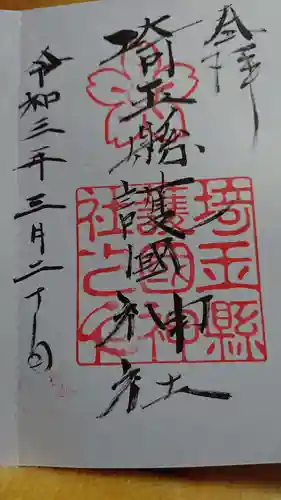 奉拝
埼玉縣護國神社
令和三年三月二十日
埼玉縣
護國神
社之印